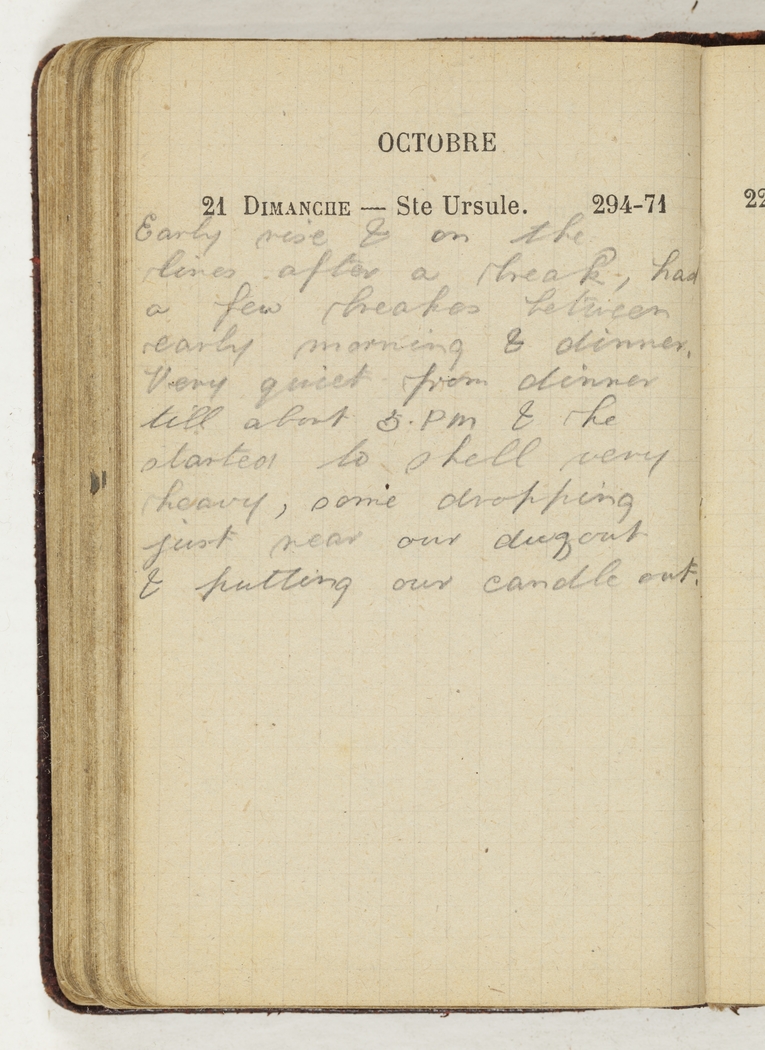 OCTOBRE
21 DIMANCHE — Ste Ursule. 294-71
22
Early rise & on the
lines after a break, had
a few breakes between
early morning & dinner.
Very quiet from dinner
till about 5.PM & he
started to shell very
heavy, some dropping
just near our dugout
& putting our candle out.